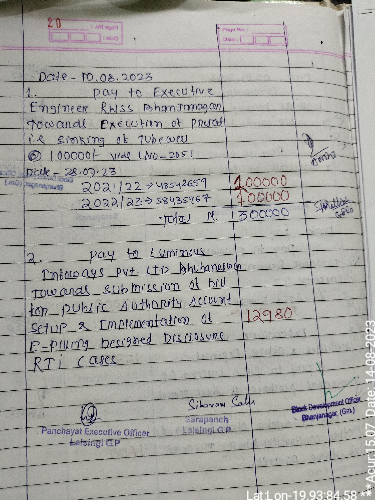 20
Page No.
Date
Date - 10.08.2023
1. Pay to Executive
Engineer RWSS Bhanjanagar
Towards Execution of Project
i.e sinking of Tubewell
@ 100000/- vide LNo - 2051
Date - 28.07.23
2021/22 → 48542659 100000
2022/23 → 58435467 100000
Total R. 300000
2. Pay to Luminous
Infoways Pvt LTD Bhubaneswar
Towards submission of bill
for public Authority Account
Setup & Implementation of 12980
E-filling Designed Disclosure
RTI Cases
Panchayat Executive Officer
Lalsingi G.P
Sarapanch
Lalsingi G.P.
Block Development Officer
Bhanjanagar, (Gm.)
Lat Lon-19.93:84.58 ** Acur:15.07 Date, 14-08-2023